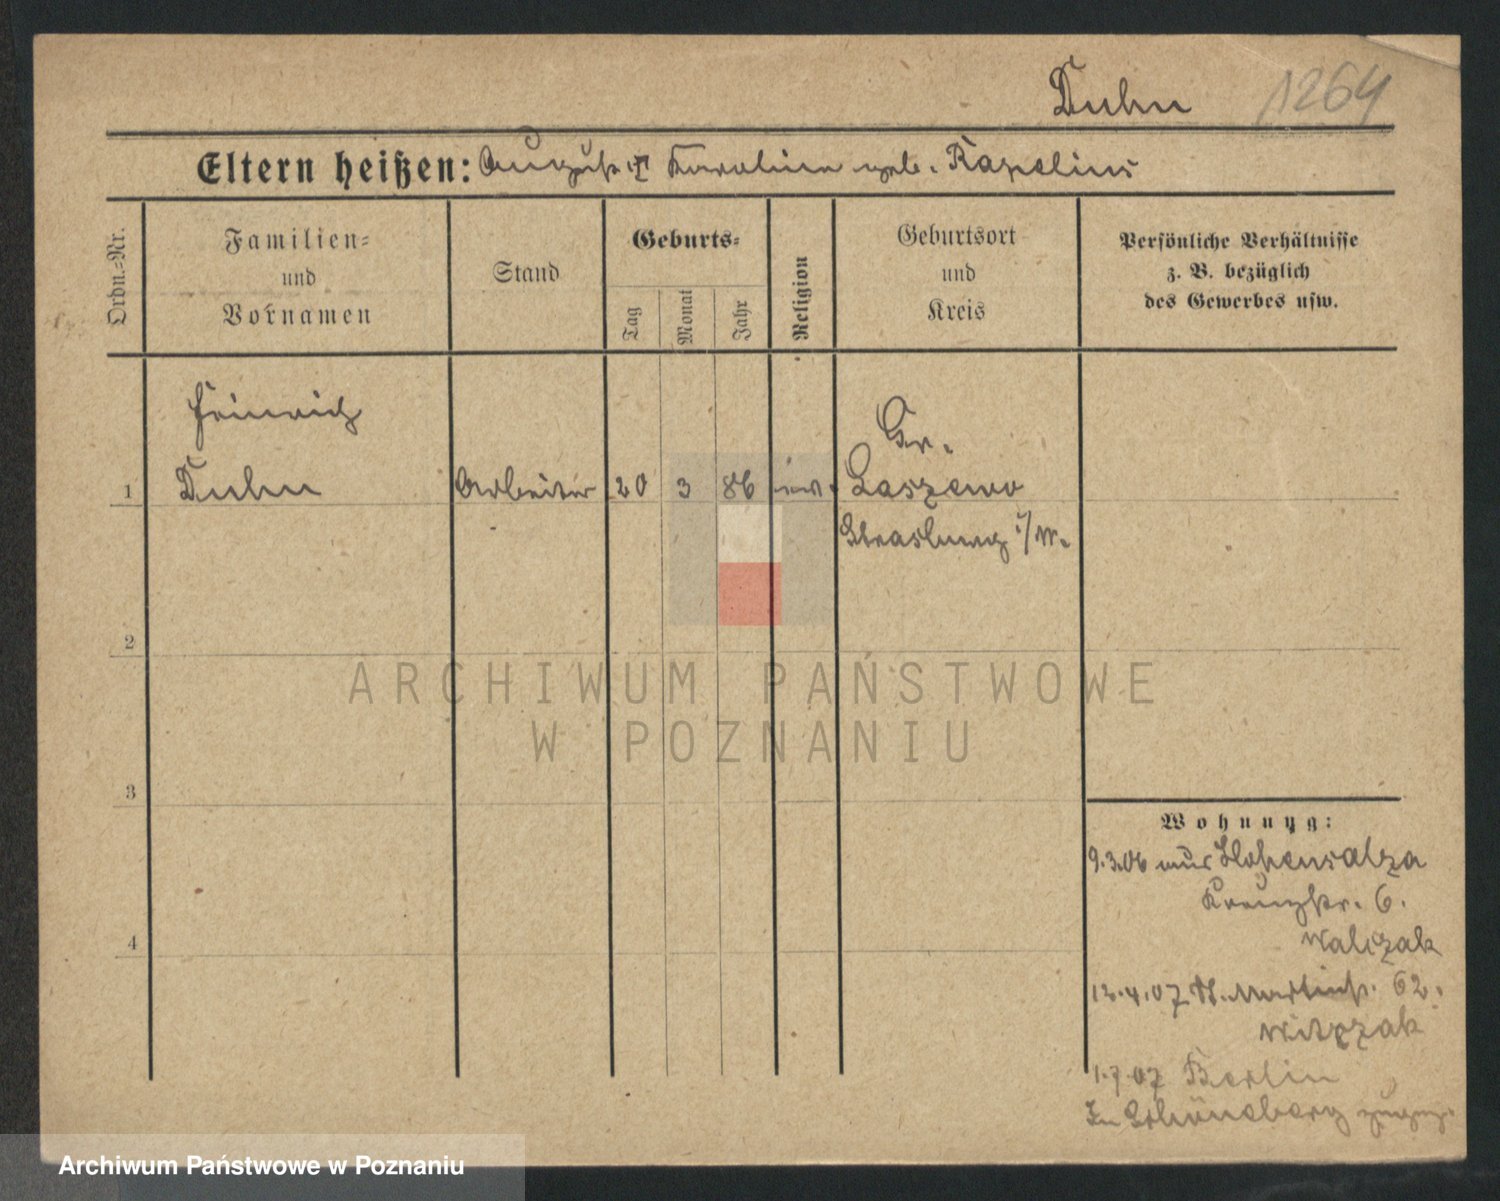 Duhn 1264
Eltern heißen: August u. Karoline geb. Kapelius
Ordn.-Nr.
Familien-
und
Vornamen
Stand
Geburts-
Tag
Monat
Jahr
Religion
Geburtsort
und
Kreis
Persönliche Verhältnisse
z. B. bezüglich
des Gewerbes usw.
Heinrich
Gr.
1 Duhn Arbeiter 20 3 86 ev. Laszewo
Strasburg i/W.
2
3
4
Wohnung:
9.3.06 aus Hohensalza
Kreuzstr. 6.
Walczak
12.4.07 St. Martinstr. 62.
Witczak
1.7.07 Berlin
In Schöneberg zugez.
ARCHIWUM PAŃSTWOWE
W POZNANIU
Archiwum Państwowe w Poznaniu